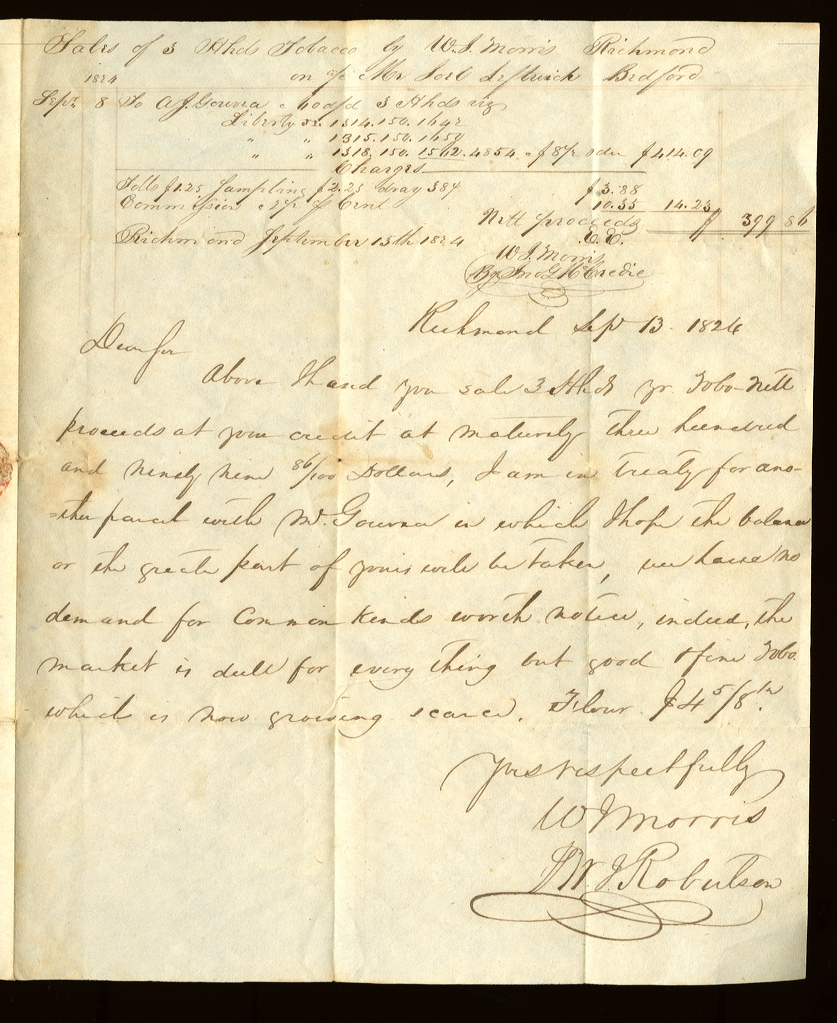 Sales of 3 Hhds Tobacco by W. J. Morris Richmond
1824 on a/c Mr Joel Leftwich Bedford
Sept 8 To A J. Gouvea 3 Hhds viz
Liberty 1314. 150. 1642
" " 1315. 150. 1650
" " 1318. 150. 1562. 4854 $414.09
Charges
Tolls $1.25 Sampling $2.25 dray 38¢ $3.88
Commission 2½ pr Cent 10.35 14.23
Nett proceeds $ 399 86
Richmond September 13th 1824 E.E.
W J. Morris
By Jno G McCredie
Richmond Sep 13. 1824
Dear Sir
Above I hand you sale 3 Hhds yr Tobo Nett
proceeds at your credit at maturity three hundred
and ninety nine 86/100 Dollars, I am in treaty for ano-
=ther parcel with Mr. Gouvea in which I hope the balance
or the greater part of yours will be taken, we have no
demand for Common kinds worth notice, indeed, the
market is dull for every thing but good & fine Tobo.
which is now growing scarce. Flour $4 5/8ths.
Yrs respectfully
W J Morris
W. J. Robertson